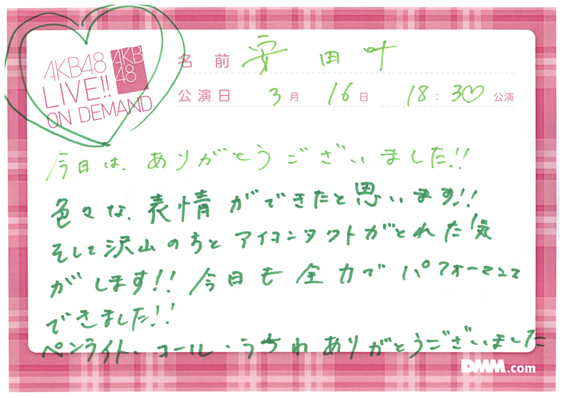 AKB48
LIVE!!
ON DEMAND
AKB
48
名前 安田叶
公演日 3月 16日 18:30 公演
今日は、ありがとうございました!!
色々な、表情ができたと思います!!
そして沢山の方とアイコンタクトがとれた気
がします!! 今日も全力でパフォーマンス
できました!!
ペンライト、コール、うちわありがとうございました
DMM.com